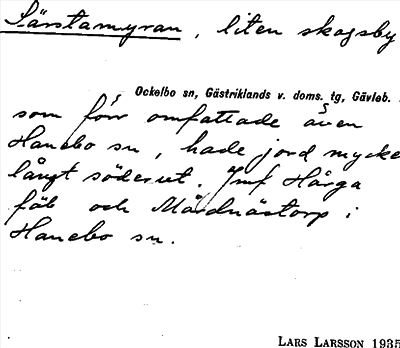 Särstamyran, liten skogsby
Ockelbo sn, Gästriklands v. doms. tg, Gävleb.
som förr omfattade även
Hanebo sn, hade jord mycke
långt söderut. Jmf Hårga
fäb och Mårdnästorp i
Hanebo sn.
LARS LARSSON 1935